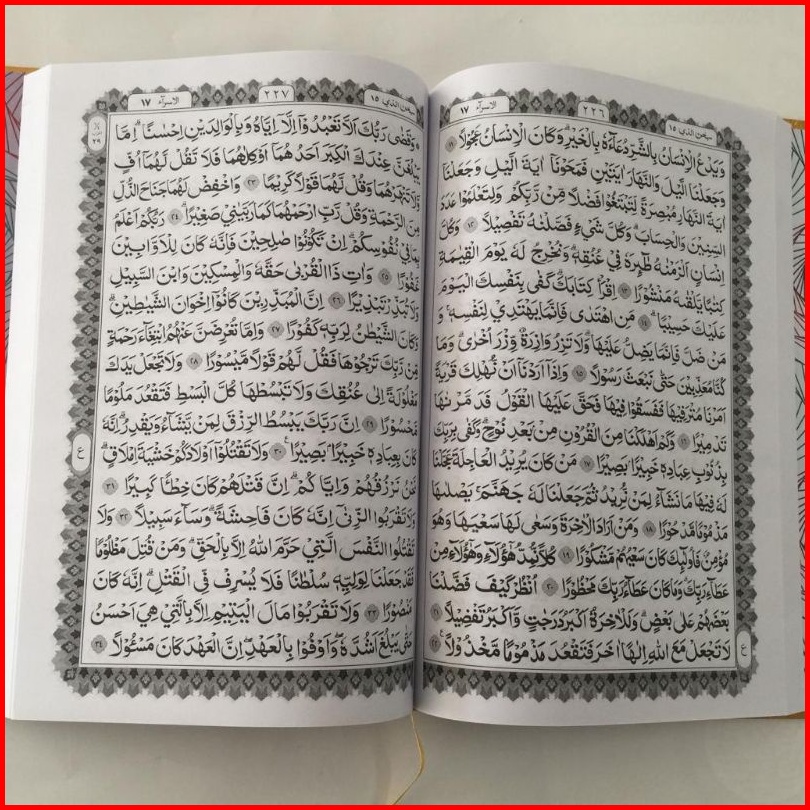 سبحن الذي ١٥ ٢٢٦ الاسرآء ١٧
وَيَدْعُ الْاِنْسَانُ بِالشَّرِّ دُعَآءَهٗ بِالْخَيْرِۗ وَكَانَ الْاِنْسَانُ عَجُوْلًا ١١
وَجَعَلْنَا الَّيْلَ وَالنَّهَارَ اٰيَتَيْنِ فَمَحَوْنَآ اٰيَةَ الَّيْلِ وَجَعَلْنَآ
اٰيَةَ النَّهَارِ مُبْصِرَةً لِّتَبْتَغُوْا فَضْلًا مِّنْ رَّبِّكُمْ وَلِتَعْلَمُوْا عَدَدَ
السِّنِيْنَ وَالْحِسَابَۗ وَكُلَّ شَيْءٍ فَصَّلْنٰهُ تَفْصِيْلًا ١٢ وَكُلَّ
اِنْسَانٍ اَلْزَمْنٰهُ طٰۤىِٕرَهٗ فِيْ عُنُقِهٖۗ وَنُخْرِجُ لَهٗ يَوْمَ الْقِيٰمَةِ
كِتٰبًا يَّلْقٰىهُ مَنْشُوْرًا ١٣ اِقْرَأْ كِتَابَكَۗ كَفٰى بِنَفْسِكَ الْيَوْمَ
عَلَيْكَ حَسِيْبًاۗ ١٤ مَنِ اهْتَدٰى فَاِنَّمَا يَهْتَدِيْ لِنَفْسِهٖۚ وَ
مَنْ ضَلَّ فَاِنَّمَا يَضِلُّ عَلَيْهَاۗ وَلَا تَزِرُ وَازِرَةٌ وِّزْرَ اُخْرٰىۗ وَمَا
كُنَّا مُعَذِّبِيْنَ حَتّٰى نَبْعَثَ رَسُوْلًا ١٥ وَاِذَآ اَرَدْنَآ اَنْ نُّهْلِكَ قَرْيَةً
اَمَرْنَا مُتْرَفِيْهَا فَفَسَقُوْا فِيْهَا فَحَقَّ عَلَيْهَا الْقَوْلُ فَدَمَّرْنٰهَا
تَدْمِيْرًا ١٦ وَكَمْ اَهْلَكْنَا مِنَ الْقُرُوْنِ مِنْۢ بَعْدِ نُوْحٍۗ وَكَفٰى بِرَبِّكَ
بِذُنُوْبِ عِبَادِهٖ خَبِيْرًاۢ بَصِيْرًا ١٧ مَنْ كَانَ يُرِيْدُ الْعَاجِلَةَ عَجَّلْنَا
لَهٗ فِيْهَا مَا نَشَآءُ لِمَنْ نُّرِيْدُ ثُمَّ جَعَلْنَا لَهٗ جَهَنَّمَۚ يَصْلٰىهَا
مَذْمُوْمًا مَّدْحُوْرًا ١٨ وَمَنْ اَرَادَ الْاٰخِرَةَ وَسَعٰى لَهَا سَعْيَهَا وَهُوَ
مُؤْمِنٌ فَاُولٰۤىِٕكَ كَانَ سَعْيُهُمْ مَّشْكُوْرًا ١٩ كُلًّا نُّمِدُّ هٰٓؤُلَاۤءِ وَهٰٓؤُلَاۤءِ مِنْ
عَطَآءِ رَبِّكَۗ وَمَا كَانَ عَطَآءُ رَبِّكَ مَحْظُوْرًا ٢٠ اُنْظُرْ كَيْفَ فَضَّلْنَا
بَعْضَهُمْ عَلٰى بَعْضٍۗ وَلَلْاٰخِرَةُ اَكْبَرُ دَرَجٰتٍ وَّاَكْبَرُ تَفْضِيْلًا ٢١
لَا تَجْعَلْ مَعَ اللّٰهِ اِلٰهًا اٰخَرَ فَتَقْعُدَ مَذْمُوْمًا مَّخْذُوْلًا ࣖ ٢٢
ع
سبحن الذي ١٥ ٢٢٧ الاسرآء ١٧
۞ وَقَضٰى رَبُّكَ اَلَّا تَعْبُدُوْٓا اِلَّآ اِيَّاهُ وَبِالْوَالِدَيْنِ اِحْسٰنًاۗ اِمَّا
يَبْلُغَنَّ عِنْدَكَ الْكِبَرَ اَحَدُهُمَآ اَوْ كِلٰهُمَا فَلَا تَقُلْ لَّهُمَآ اُفٍّ
وَّلَا تَنْهَرْهُمَا وَقُلْ لَّهُمَا قَوْلًا كَرِيْمًا ٢٣ وَاخْفِضْ لَهُمَا جَنَاحَ الذُّلِّ
مِنَ الرَّحْمَةِ وَقُلْ رَّبِّ ارْحَمْهُمَا كَمَا رَبَّيٰنِيْ صَغِيْرًاۗ ٢٤ رَبُّكُمْ اَعْلَمُ
بِمَا فِيْ نُفُوْسِكُمْۗ اِنْ تَكُوْنُوْا صٰلِحِيْنَ فَاِنَّهٗ كَانَ لِلْاَوَّابِيْنَ
غَفُوْرًا ٢٥ وَاٰتِ ذَا الْقُرْبٰى حَقَّهٗ وَالْمِسْكِيْنَ وَابْنَ السَّبِيْلِ
وَلَا تُبَذِّرْ تَبْذِيْرًا ٢٦ اِنَّ الْمُبَذِّرِيْنَ كَانُوْٓا اِخْوَانَ الشَّيٰطِيْنِۗ
وَكَانَ الشَّيْطٰنُ لِرَبِّهٖ كَفُوْرًا ٢٧ وَاِمَّا تُعْرِضَنَّ عَنْهُمُ ابْتِغَآءَ رَحْمَةٍ
مِّنْ رَّبِّكَ تَرْجُوْهَا فَقُلْ لَّهُمْ قَوْلًا مَّيْسُوْرًا ٢٨ وَلَا تَجْعَلْ يَدَكَ
مَغْلُوْلَةً اِلٰى عُنُقِكَ وَلَا تَبْسُطْهَا كُلَّ الْبَسْطِ فَتَقْعُدَ مَلُوْمًا
مَّحْسُوْرًا ٢٩ اِنَّ رَبَّكَ يَبْسُطُ الرِّزْقَ لِمَنْ يَّشَآءُ وَيَقْدِرُۗ اِنَّهٗ
كَانَ بِعِبَادِهٖ خَبِيْرًاۢ بَصِيْرًا ࣖ ٣٠ وَلَا تَقْتُلُوْٓا اَوْلَادَكُمْ خَشْيَةَ اِمْلَاقٍۗ
نَحْنُ نَرْزُقُهُمْ وَاِيَّاكُمْۗ اِنَّ قَتْلَهُمْ كَانَ خِطْـًٔا كَبِيْرًا ٣١
وَلَا تَقْرَبُوا الزِّنٰىٓ اِنَّهٗ كَانَ فَاحِشَةًۗ وَسَآءَ سَبِيْلًا ٣٢ وَلَا
تَقْتُلُوا النَّفْسَ الَّتِيْ حَرَّمَ اللّٰهُ اِلَّا بِالْحَقِّۗ وَمَنْ قُتِلَ مَظْلُوْمًا
فَقَدْ جَعَلْنَا لِوَلِيِّهٖ سُلْطٰنًا فَلَا يُسْرِفْ فِّى الْقَتْلِۗ اِنَّهٗ كَانَ
مَنْصُوْرًا ٣٣ وَلَا تَقْرَبُوْا مَالَ الْيَتِيْمِ اِلَّا بِالَّتِيْ هِيَ اَحْسَنُ
حَتّٰى يَبْلُغَ اَشُدَّهٗۖ وَاَوْفُوْا بِالْعَهْدِۖ اِنَّ الْعَهْدَ كَانَ مَسْـُٔوْلًا ٣٤
ع